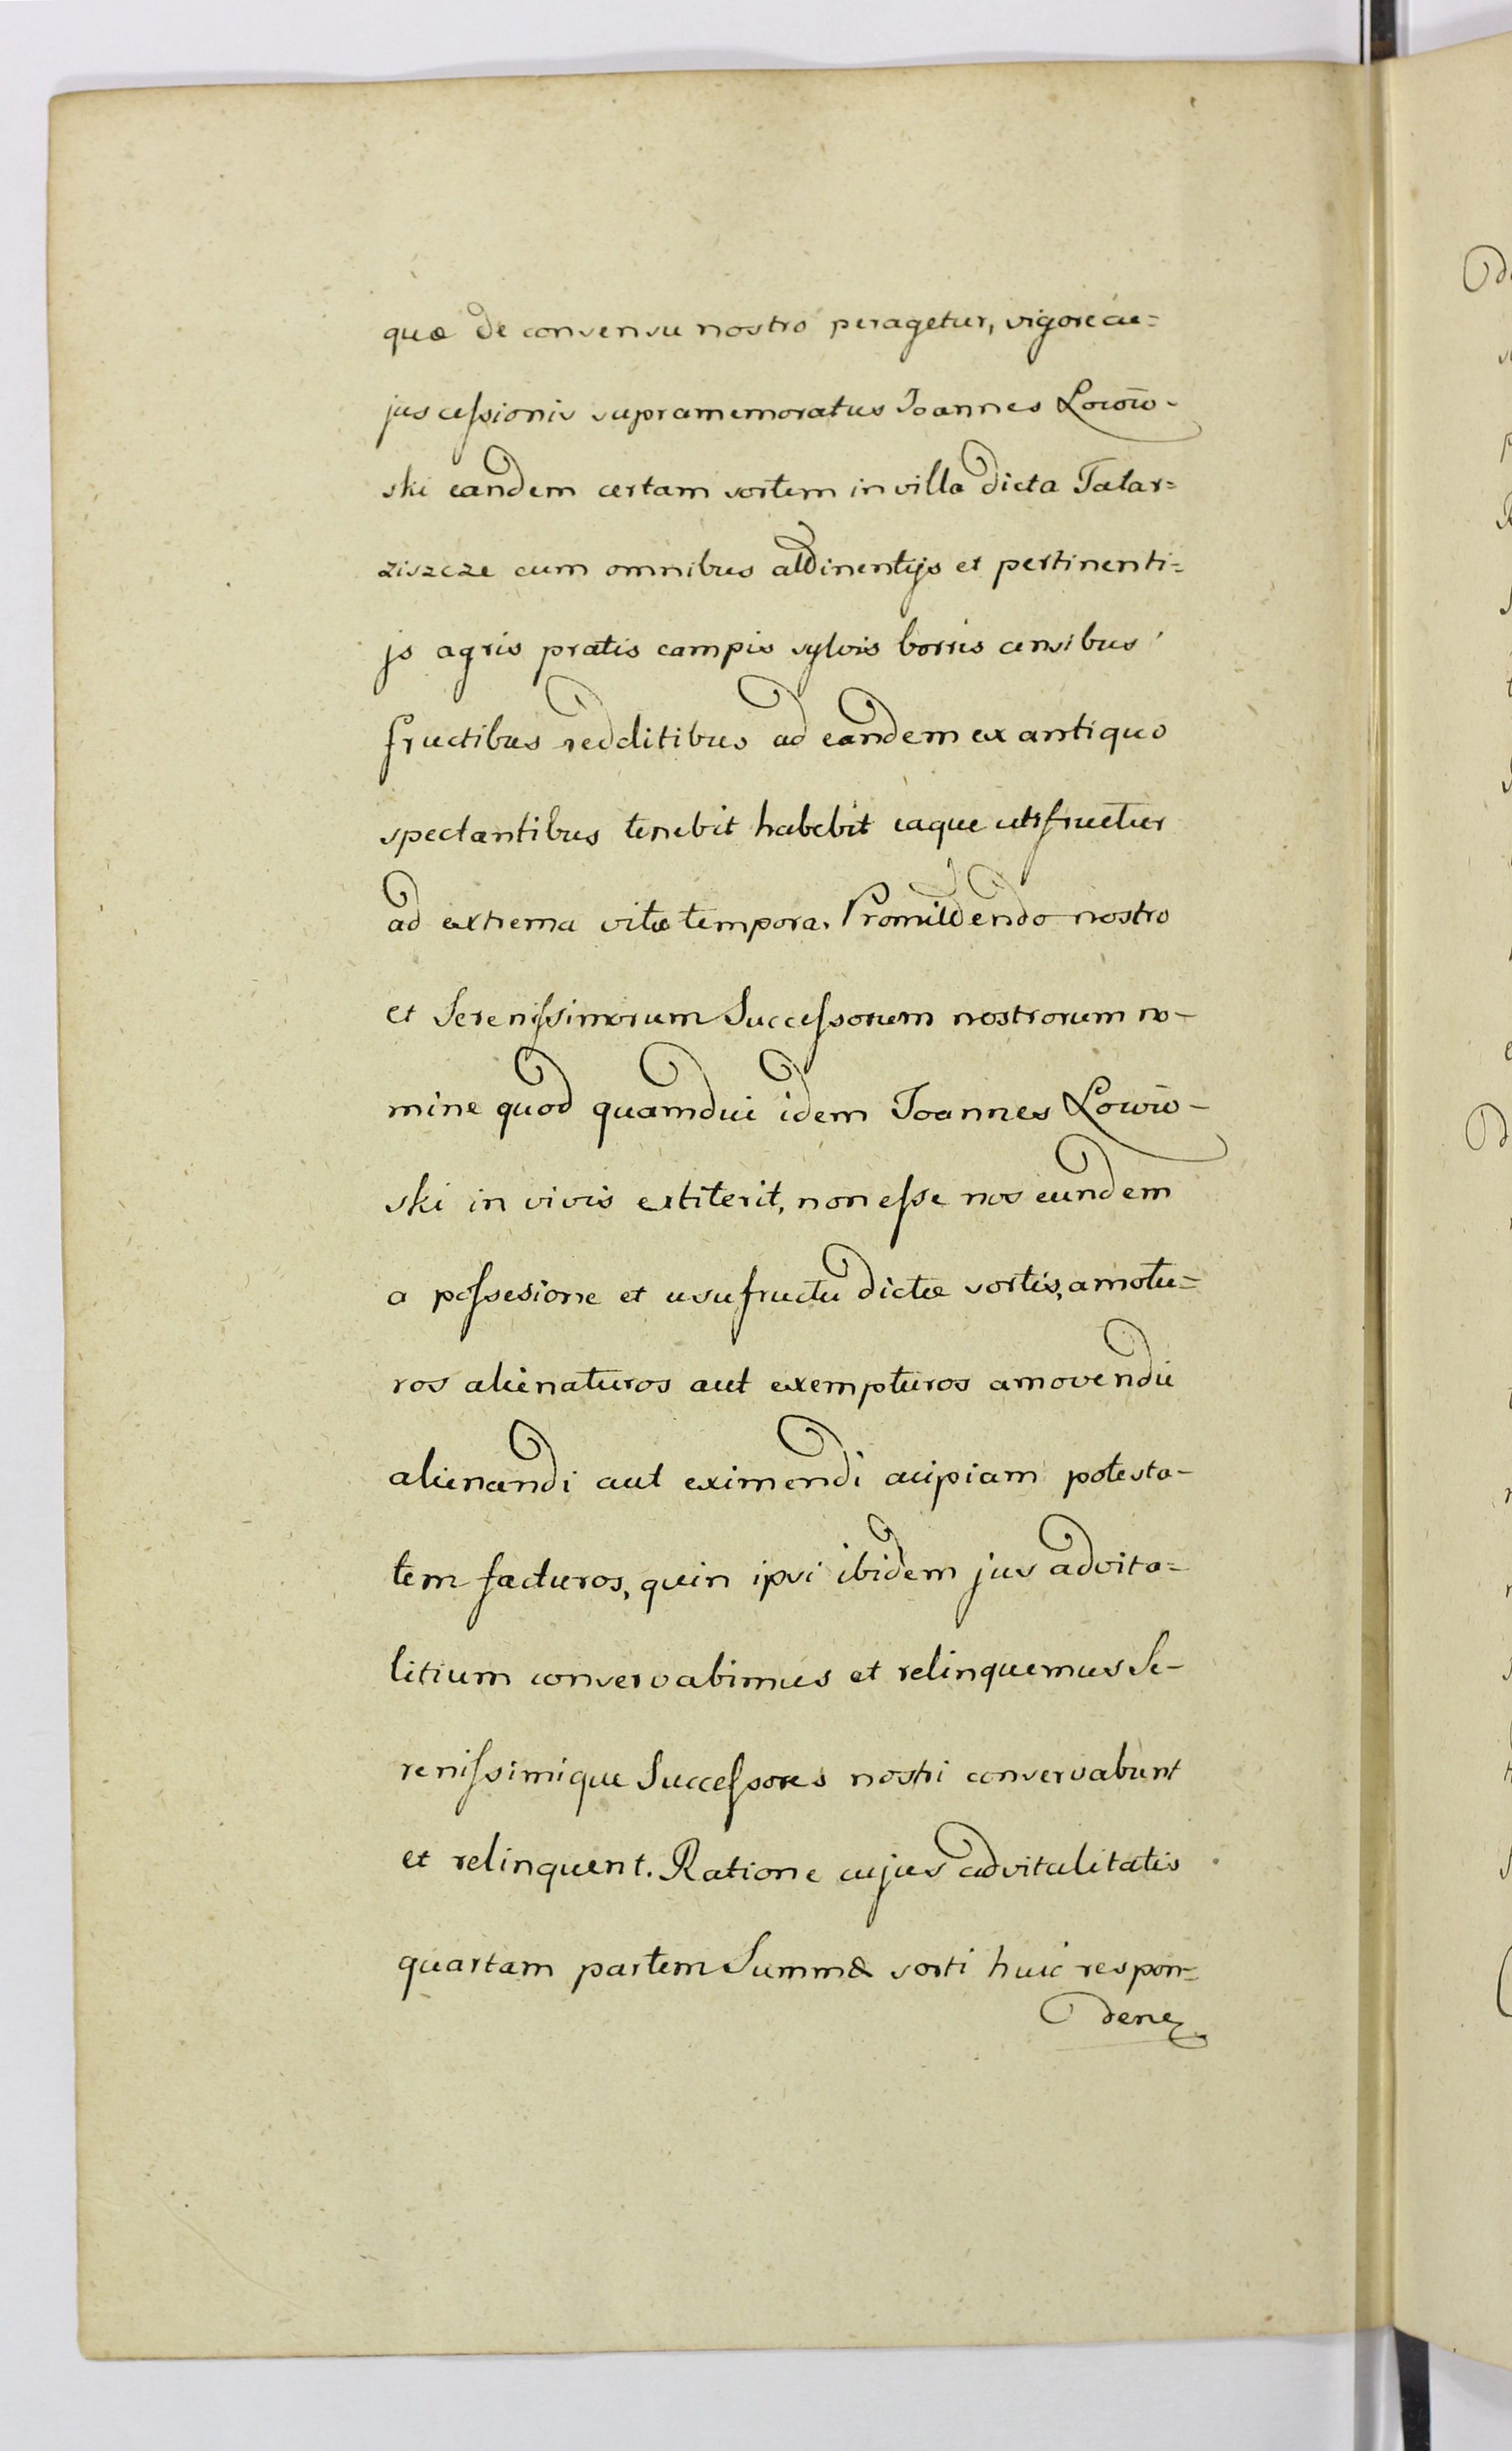 quæ de consensu nostro peragetur, vigore cu=
jus cessionis supramemoratus Joannes Łoiow-
ski eandem certam sortem in villa dicta Tatar=
ziszcze cum omnibus attinentijs et pertinenti=
js agris pratis campis sylvis borris censibus
fructibus redditibus ad eandem ex antiquo
spectantibus tenebit habebit eaque utifruetur
ad extrema vitæ tempora. Promittendo nostro
et Serenissimorum Successorum nostrorum no-
mine quod quamdui idem Joannes Łoiow-
ski in vivis extiterit, non esse nos eundem
a possesione et usufructu dictæ sortis, amotu=
ros alienaturos aut exempturos amovendi
alienandi aut eximendi cuipiam potesta-
tem facturos, quin ipsi ibidem jus advita=
litium conservabimus et relinquemus Se-
renissimique Successores nostri conservabunt
et relinquent. Ratione cujus advitalitatis
quartam partem Summæ sorti huic respon=
den